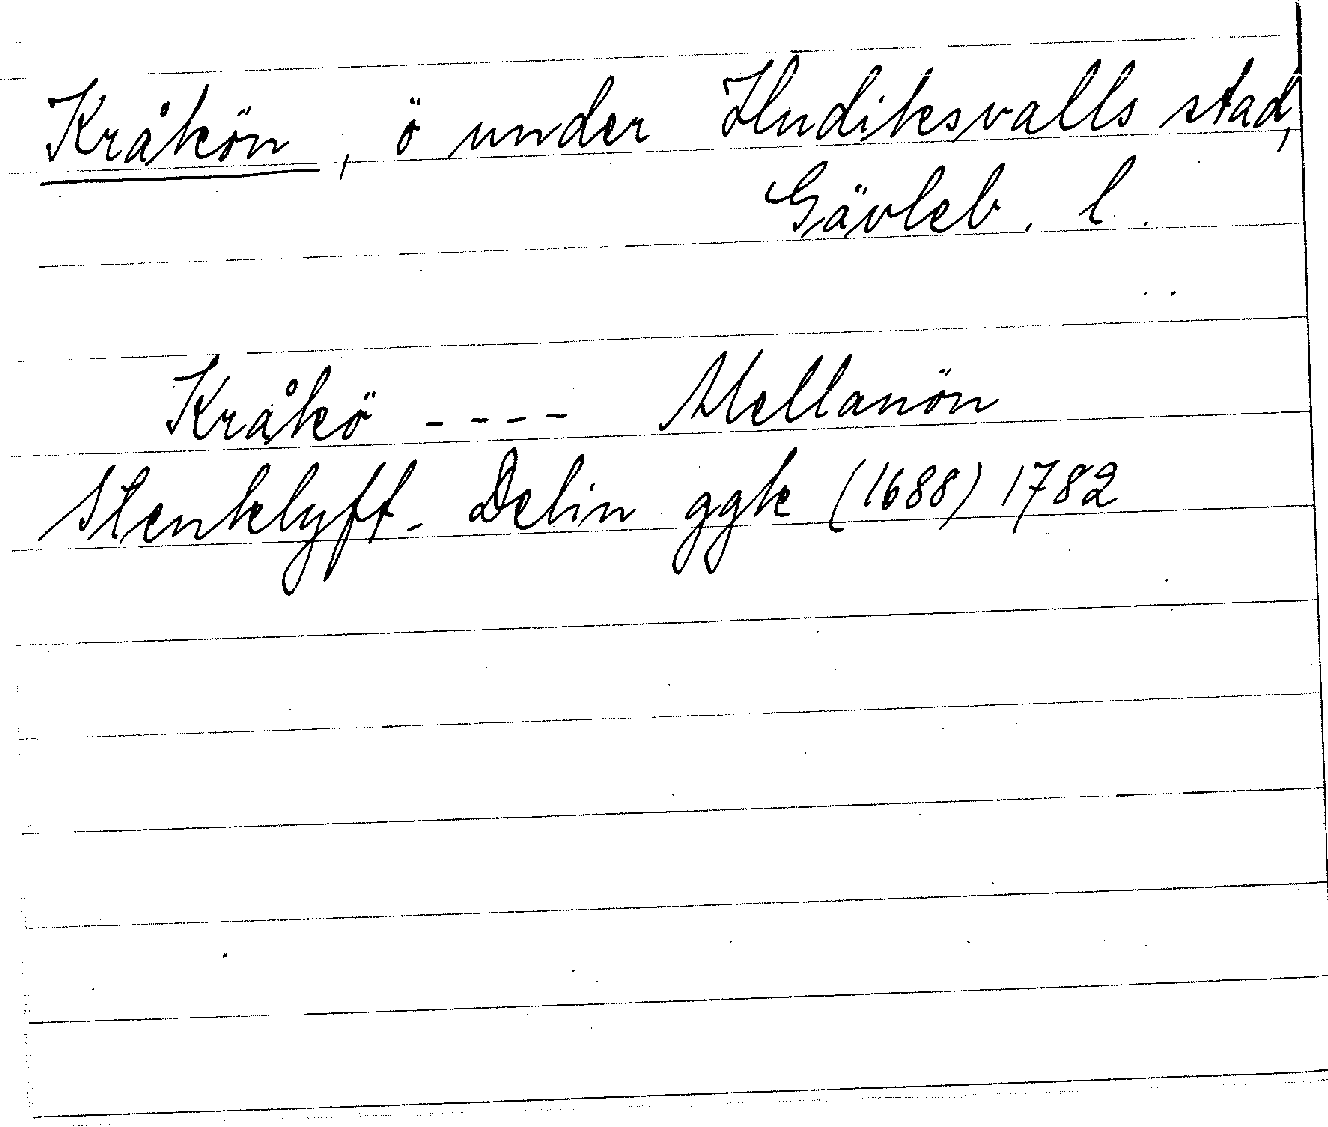 Kråkön, ö under Hudiksvalls stad,
Gävleb. l.
Kråkö ---- Mellanön
Stenklyft. Delin ggk (1688) 1782